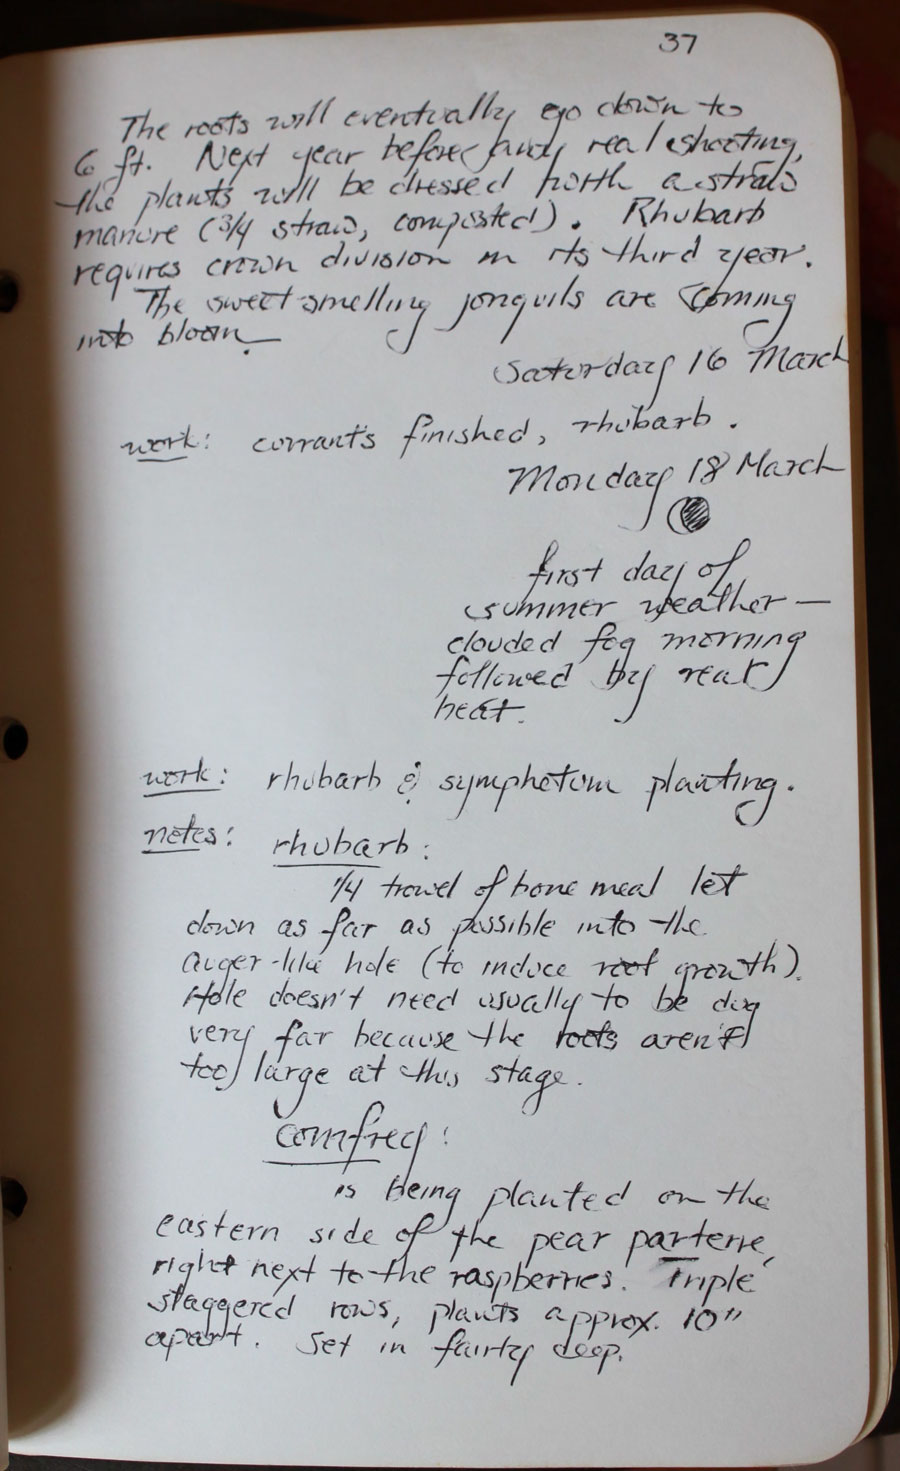 37
The roots will eventually go down to
6 ft. Next year before any real shooting,
the plants will be dressed with a straw
manure (3/4 straw, composted). Rhubarb
requires crown division in its third year.
The sweet-smelling jonquils are coming
into bloom.
Saturday 16 March
work: currants finished, rhubarb.
Monday 18 March
first day of
summer weather —
clouded fog morning
followed by real
heat.
work: rhubarb & symphetum planting.
notes: rhubarb:
1/4 trowel of bone meal let
down as far as possible into the
auger-like hole (to induce root growth).
Hole doesn't need usually to be dug
very far because the roots aren't
too large at this stage.
comfrey:
is being planted on the
eastern side of the pear parterre,
right next to the raspberries. Triple
staggered rows, plants approx. 10"
apart. Set in fairly deep.